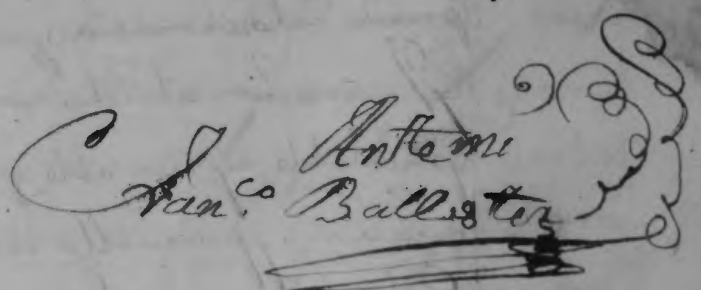 Ante mi
Fran.co Ballester